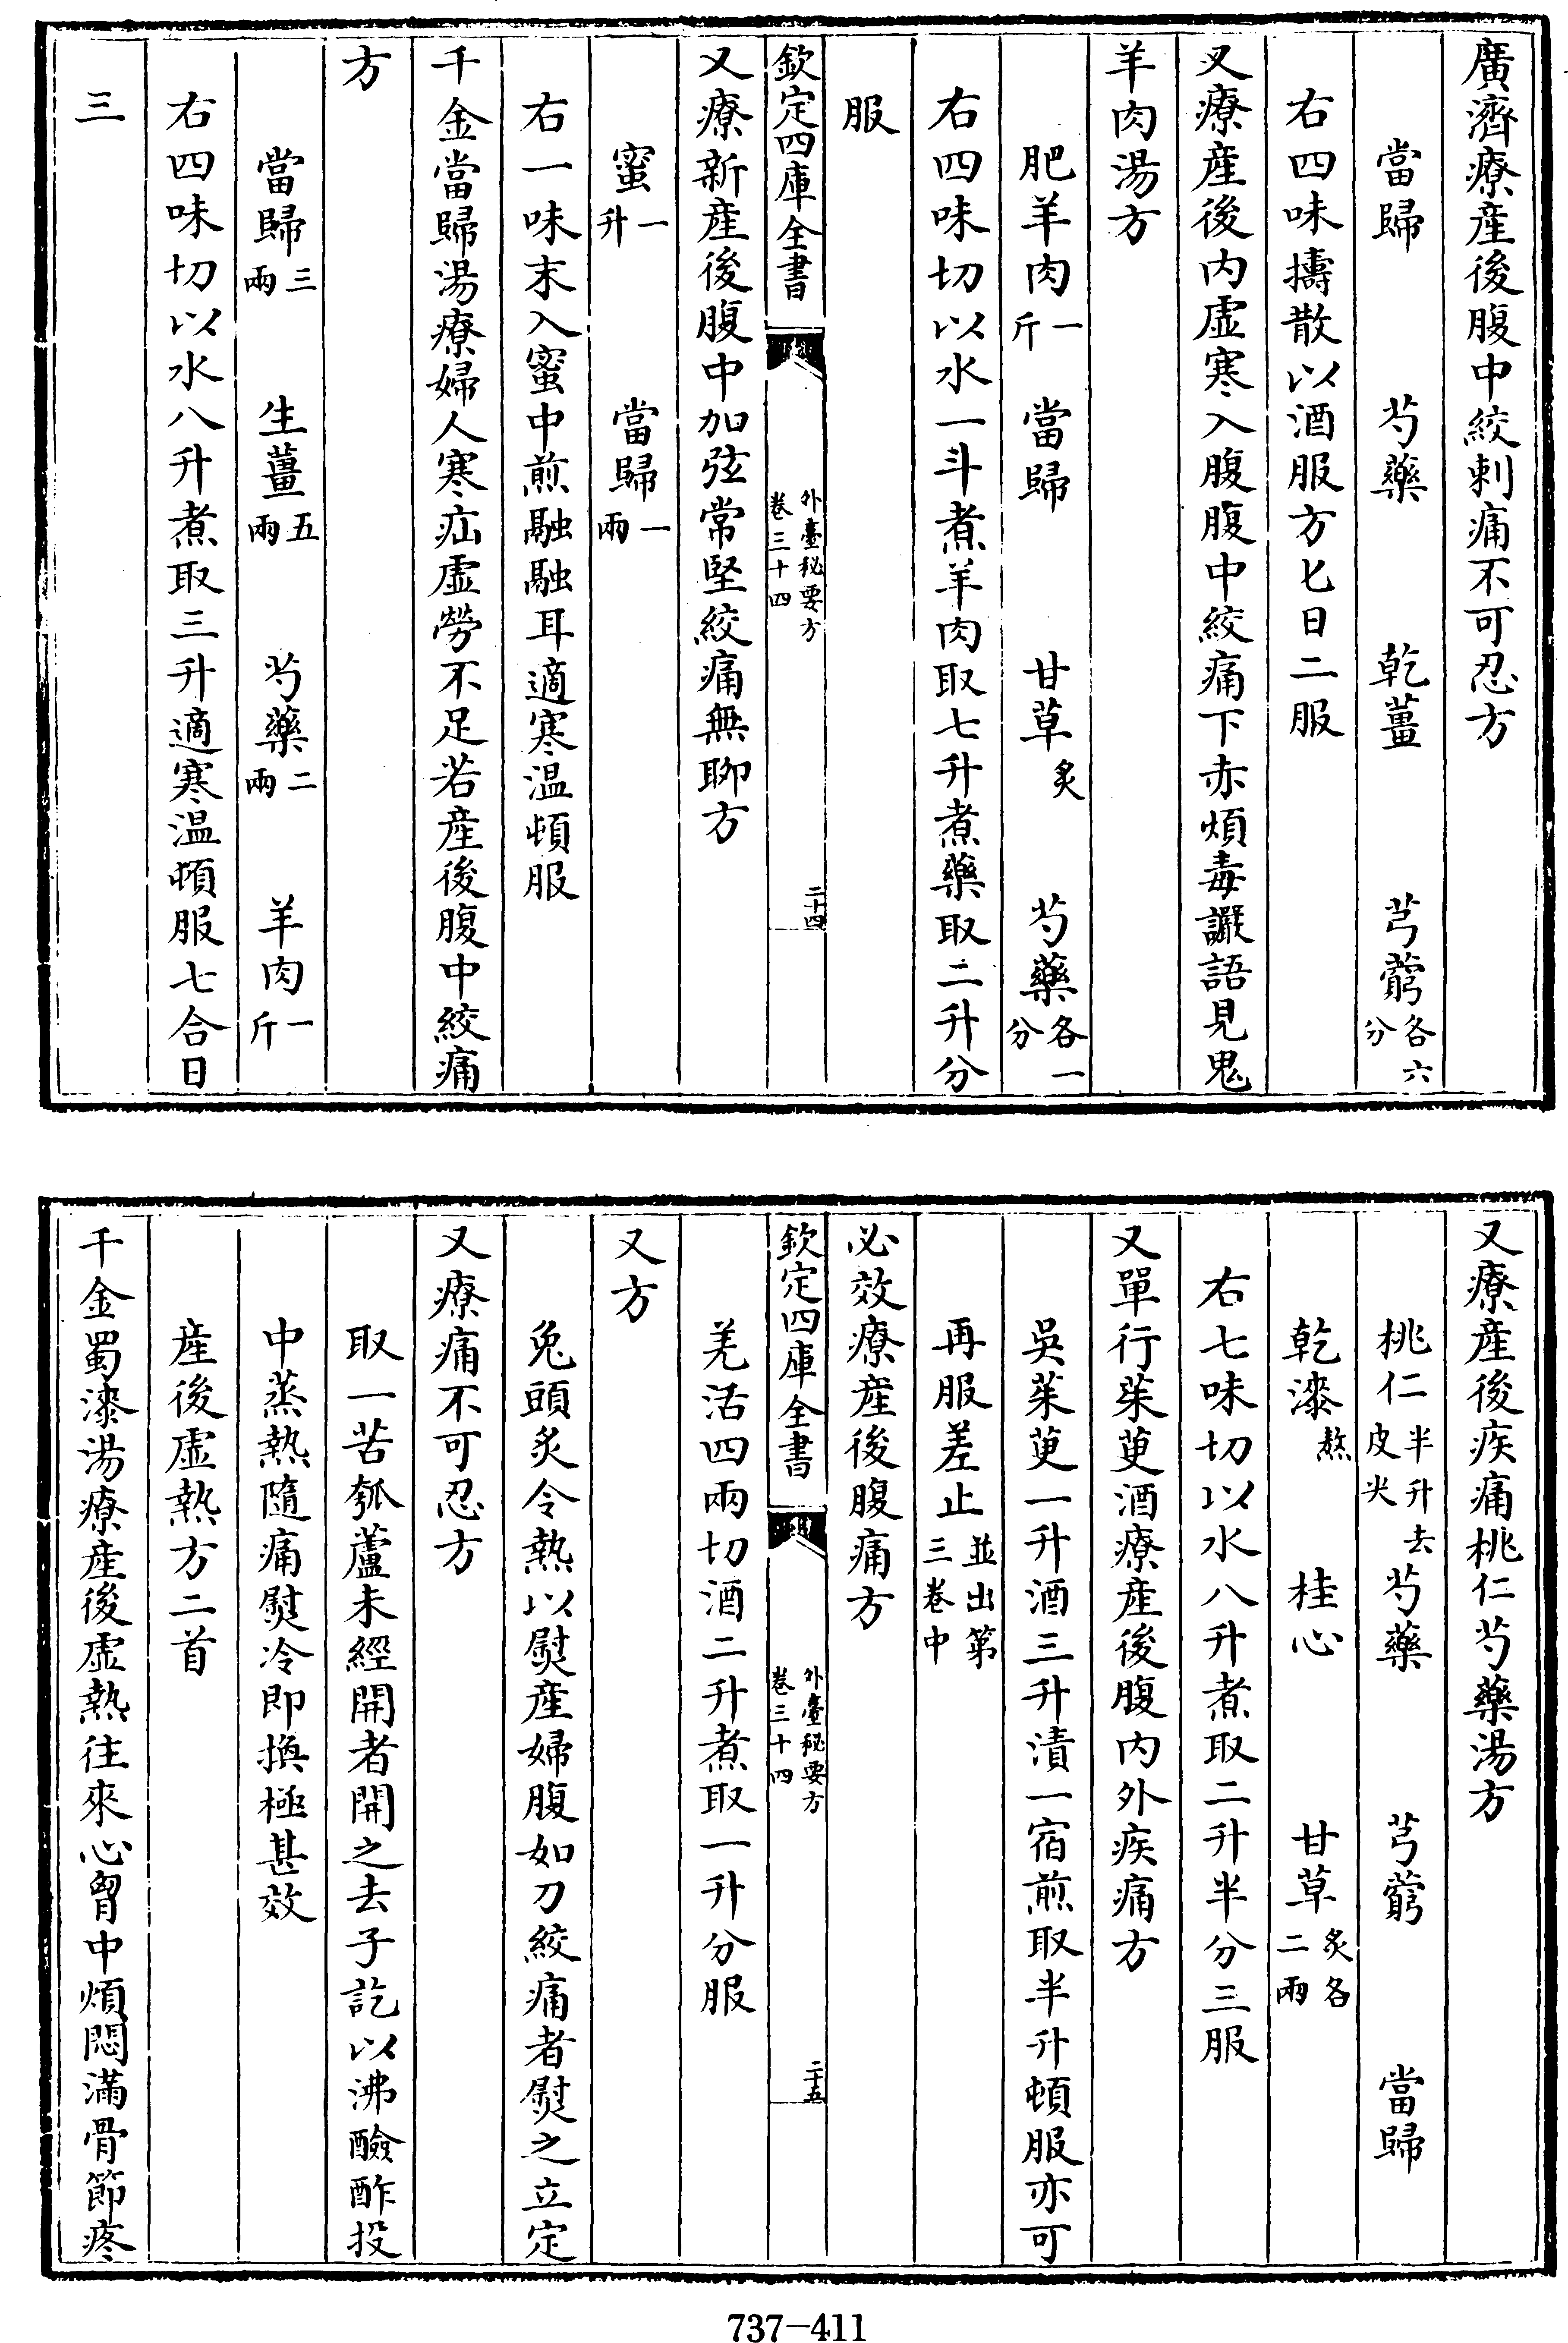 廣濟療産後腹中絞刺痛不可忍方
當歸 芍藥 乾薑 芎藭各六分
右四味擣散以酒服方匕日二服
又療産後内虚寒入腹腹中絞痛下赤煩毒讝語見鬼
羊肉湯方
肥羊肉一斤 當歸 甘草炙 芍藥各一分
右四味切以水一斗煮羊肉取七升煮藥取二升分
服
欽定四庫全書 外臺秘要方卷三十四 二十四
又療新産後腹中加弦常堅絞痛無聊方
蜜一升 當歸一兩
右一味末入蜜中煎融融耳適寒温頓服
千金當歸湯療婦人寒疝虚勞不足若産後腹中絞痛
方
當歸三兩 生薑五兩 芍藥二兩 羊肉一斤
右四味切以水八升煮取三升適寒温頓服七合日
三
又療産後疾痛桃仁芍藥湯方
桃仁半升去皮尖 芍藥 芎藭 當歸
乾漆熬 桂心 甘草炙各二兩
右七味切以水八升煮取二升半分三服
又單行茱萸酒療産後腹内外疾痛方
吳茱萸一升酒三升漬一宿煎取半升頓服亦可
再服差止並出第三卷中
必效療産後腹痛方
欽定四庫全書 外臺秘要方卷三十四 二十五
羌活四兩切酒二升煮取一升分服
又方
兔頭炙令熱以熨産婦腹如刀絞痛者熨之立定
又療痛不可忍方
取一苦瓠蘆未經開者開之去子訖以沸醶酢投
中蒸熱隨痛熨冷即換極甚效
産後虚熱方二首
千金蜀漆湯療産後虚熱往來心胷中煩悶滿骨節疼
737-411